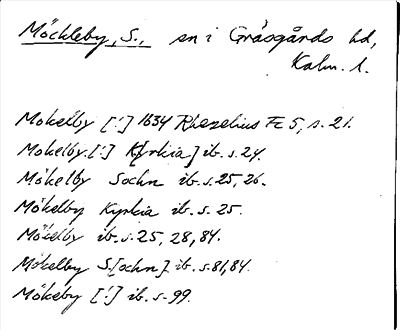 Möckleby, S., sn i Gräsgårds hd,
Kalm. l.
Mokelby [!] 1634 Rhezelius Fc 5, s. 21.
Mokelby [!] K[yrkia] ib. s. 24.
Mökelby Sochn ib. s. 25, 26.
Mökelby Kyrkia ib. s. 25.
Mökelby ib. s. 25, 28, 84.
Mökelby S[ochn] ib. s. 81, 84.
Mökeby [!] ib. s. 99.